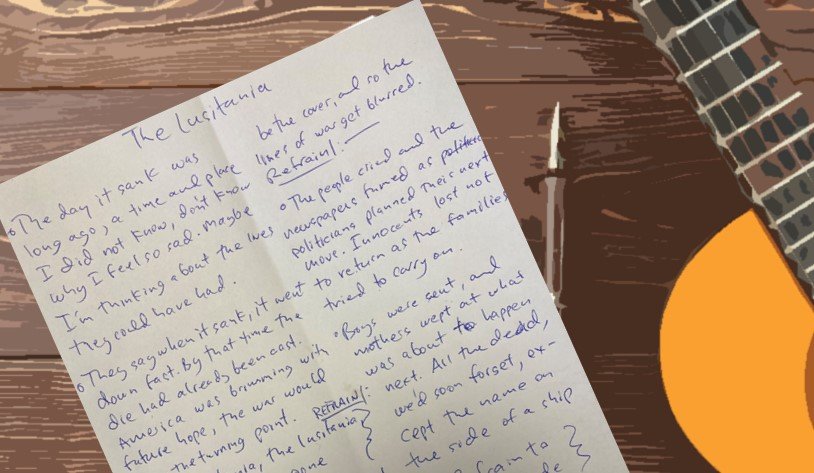 The Lusitania
•The day it sank was
long ago, a time and place
I did not know, don't know
why I feel so sad. Maybe
I'm thinking about the lives
they could have had.
•They say when it sank, it went
down fast. By that time the
die had already been cast.
America was brimming with
future hope, the war would
the turning point.
REFRAIN/:
the Lusitania
gone
be the cover, and so the
lines of war get blurred.
Refrain/:
•The people cried and the
newspapers fumed as
politicians planned their next
move. Innocents lost not
to return as the families
tried to carry on.
•Boys were sent, and
mothers wept at what
was about to happen
next. All the dead,
we'd soon forget, ex-
cept the name on
the side of a ship